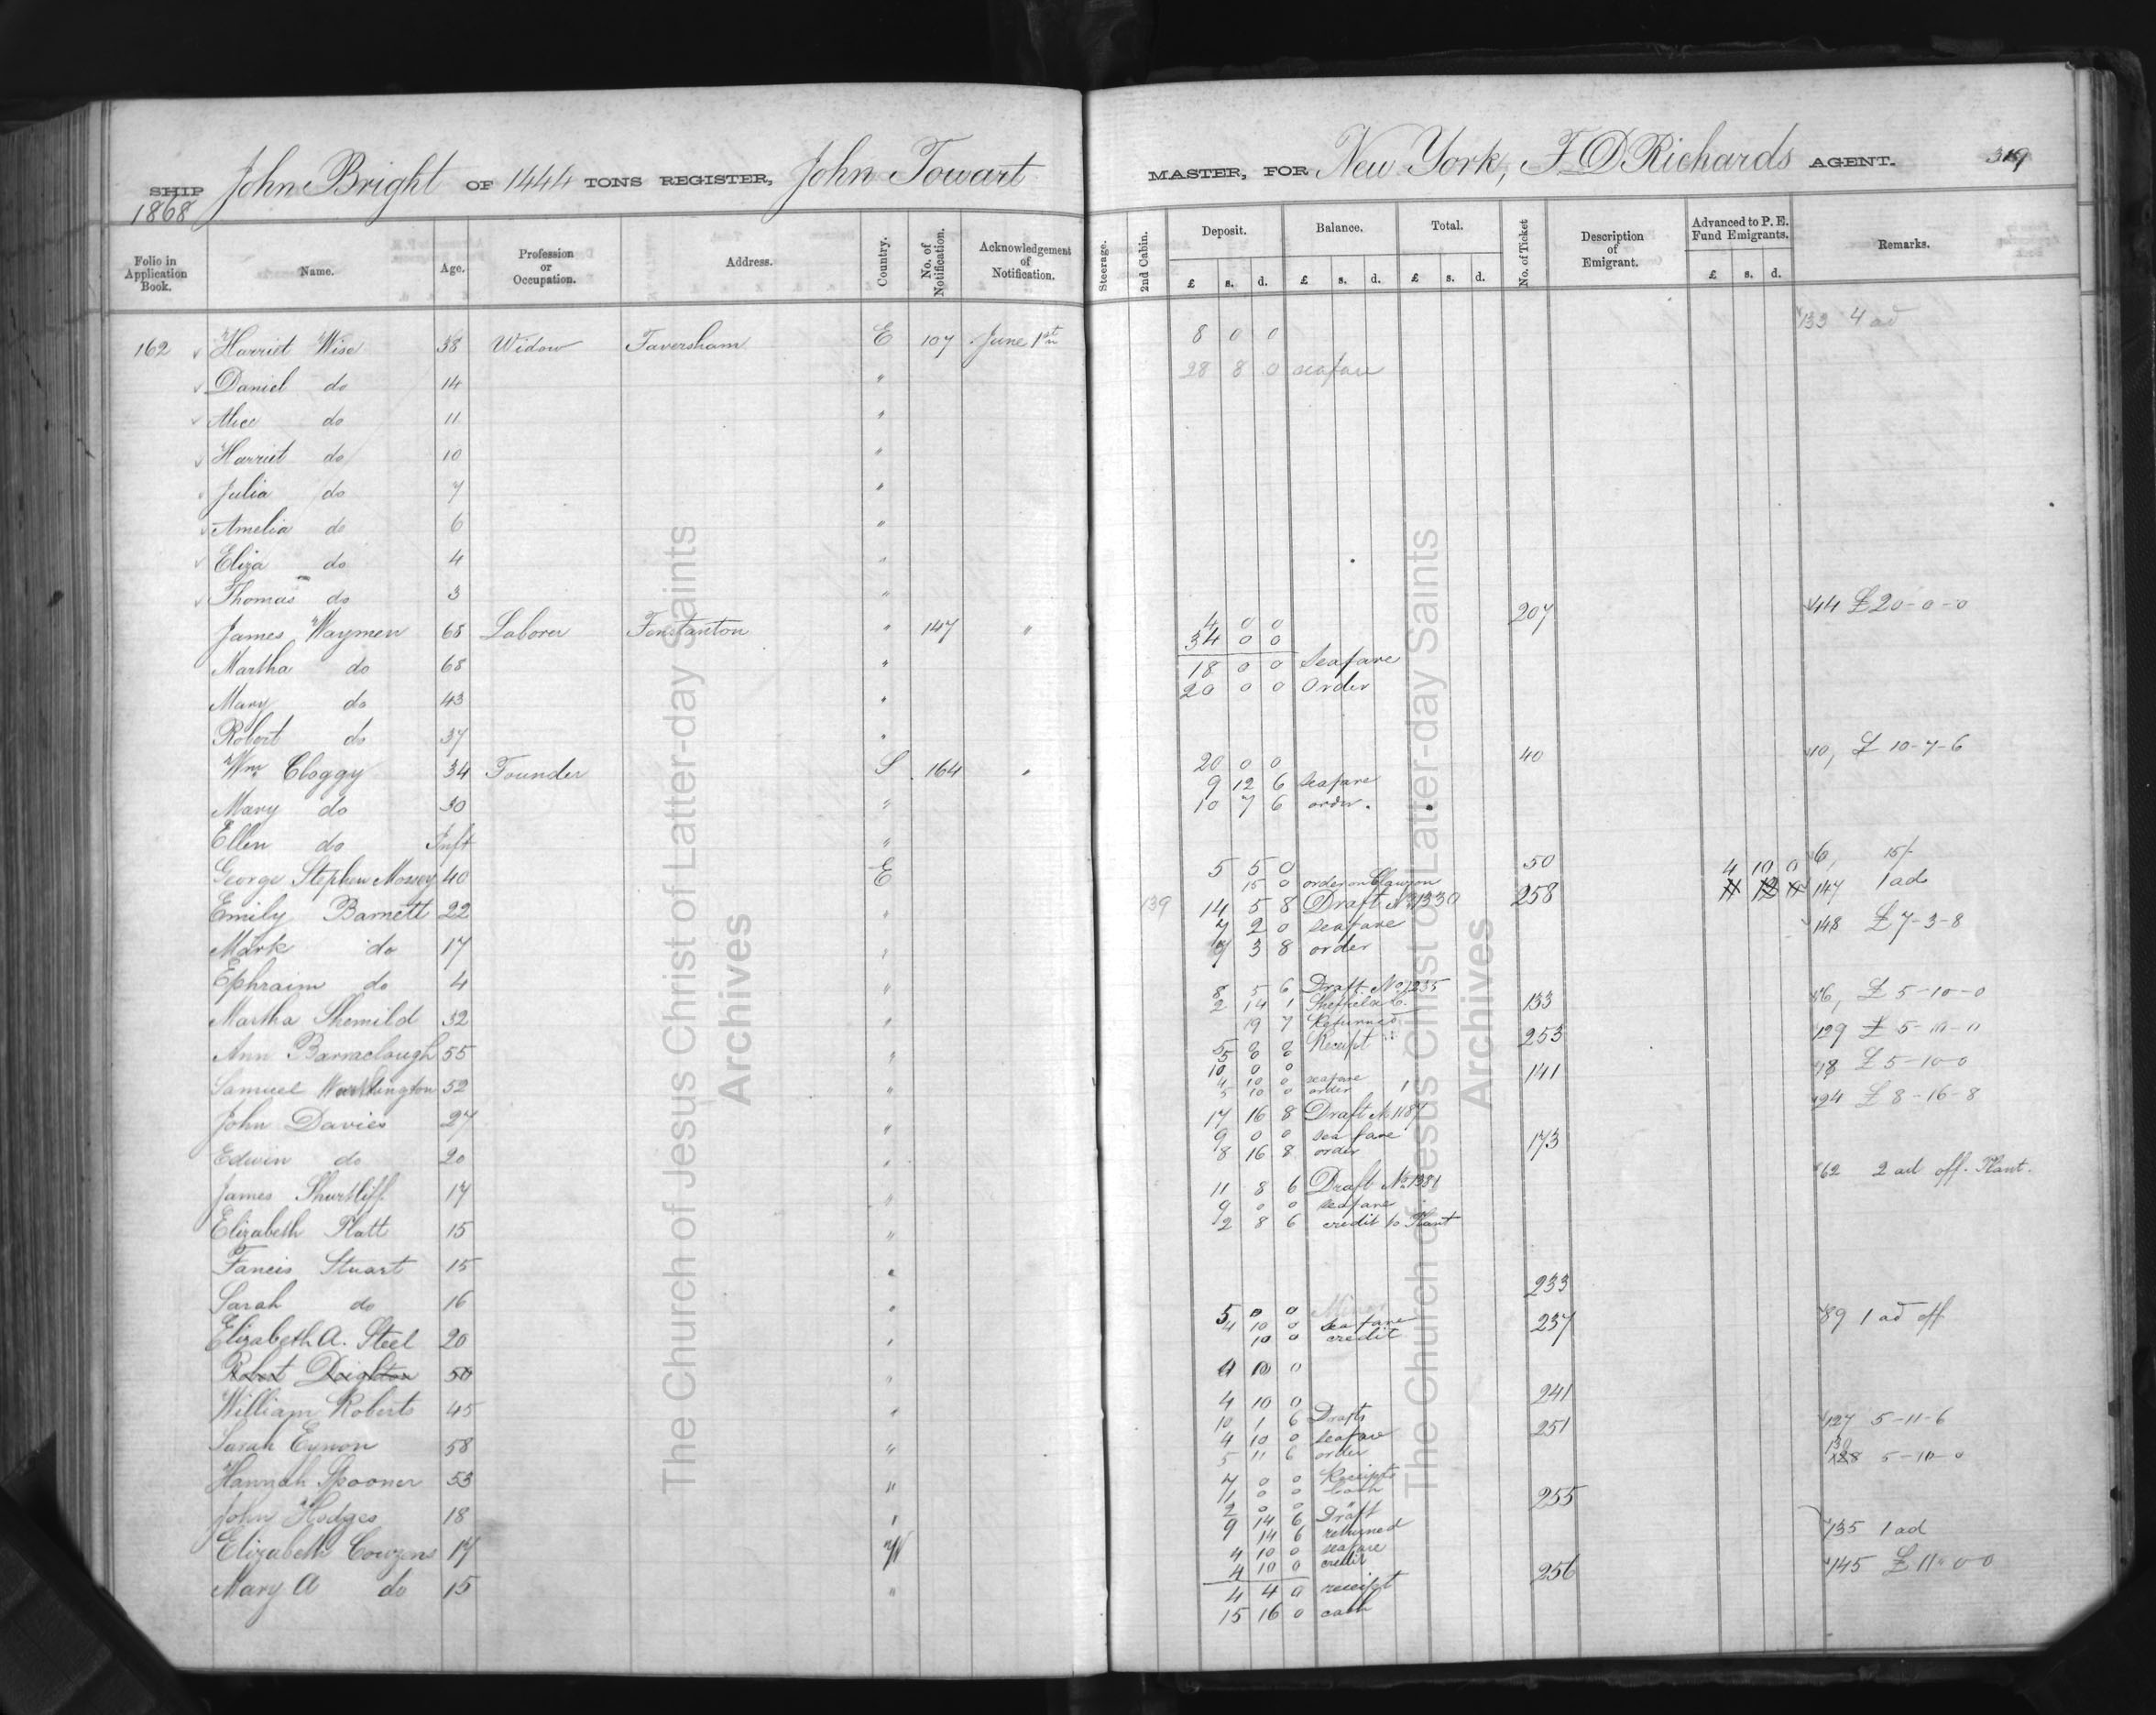 SHIP John Bright OF 1444 TONS REGISTER, John Towart MASTER, FOR New York, F D Richards AGENT. 319
1868
Folio in Application Book. Name. Age. Profession or Occupation. Address. Country. No. of Notification. Acknowledgement of Notification. Steerage. 2nd Cabin. Deposit. Balance. Total. No. of Ticket Description of Emigrant. Advanced to P. E. Fund Emigrants. Remarks.
£ s. d. £ s. d. £ s. d. £ s. d.
133 4 ad
162 Harriet Wise 38 Widow Faversham E 107 June 1st 8 0 0
Daniel do 14 " 28 8 0 seafare
Alice do 11 "
Harriet do 10 "
Julia do 7 "
Amelia do 6 "
Eliza do 4 "
Thomas do 3 "
James Waymen 68 Laborer Fenstanton " 147 " 4 0 0 207 44 £20-0-0
34 0 0
Martha do 68 " 18 0 0 Seafare
Mary do 43 " 20 0 0 Order
Robert do 37 "
Wm Cloggy 34 Founder S 164 " 20 0 0 40 10, £ 10-7-6
9 12 6 seafare
Mary do 30 " 10 7 6 order.
Ellen do Inft "
George Stephen Mossey 40 E 5 5 0 50 4 10 0 6, 15/-
15 0 order on
Emily Barnett 22 " 139 14 5 8 Draft No 1330 258 147 1 ad
7 2 0 seafare 148 £7-3-8
Mark do 17 " 7 3 8 order
Ephraim do 4 " 8 5 6 Draft No 1235
Martha Shemild 32 " 2 14 1 133 86, £ 5-10-0
19 7 Returned
Ann Barraclough 55 " 5 0 0 Receipt 253 129 £ 5-10-0
5 0 0
Samuel Worthington 52 " 10 0 0 141 18 £ 5-10-0
4 10 0 seafare
5 10 0 order
John Davies 27 " 17 16 8 Draft No 1187 94 £ 8-16-8
9 0 0 sea fare 173
Edwin do 20 " 8 16 8 order
James Shurtliff 17 " 11 8 6 Draft No 1981 62 2 ad off. Plant.
9 0 0 seafare
Elizabeth Platt 15 " 2 8 6 credit to Plant
Fancis Stuart 15 "
Sarah do 16 " 233
5 0 0
Elizabeth A. Steel 20 " 4 10 0 Sea fare 237 89 1 ad off
10 0 credit
Robert Deighton 50 " 4 10 0
William Roberts 45 " 4 10 0 241
Sarah Eynon 58 " 10 1 6 Drafts 251 127 5-11-6
4 10 0 seafare
5 11 6 order
Hannah Spooner 53 " 7 0 0 Receipts 130 128 5-10-0
1 0 0 Cash
John Hodges 18 " 2 0 0 " 255
9 14 6 Draft
14 6 returned 135 1 ad
Elizabeth Cowzens 17 " 4 10 0 seafare
4 10 0 credit
Mary A do 15 " 4 4 0 receipt 256 145 £ 11-0-0
15 16 0 cash
The Church of Jesus Christ of Latter-day Saints
Archives
The Church of Jesus Christ of Latter-day Saints
Archives